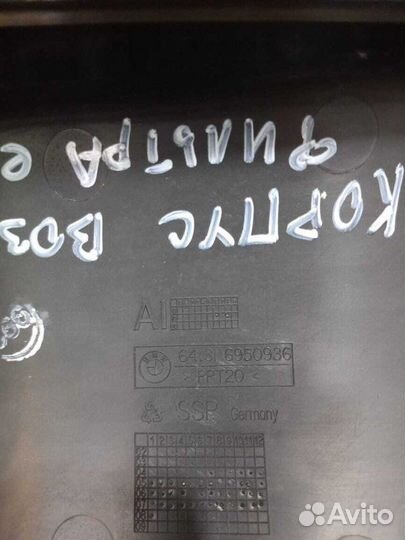 КОРПУС ВОЗ
ФИЛЬТРА
AI
BMW 64.31 6950936
>PPT20<
SSP Germany
1 2 3 4 5 6 7 8 9 10 11 12
Avito